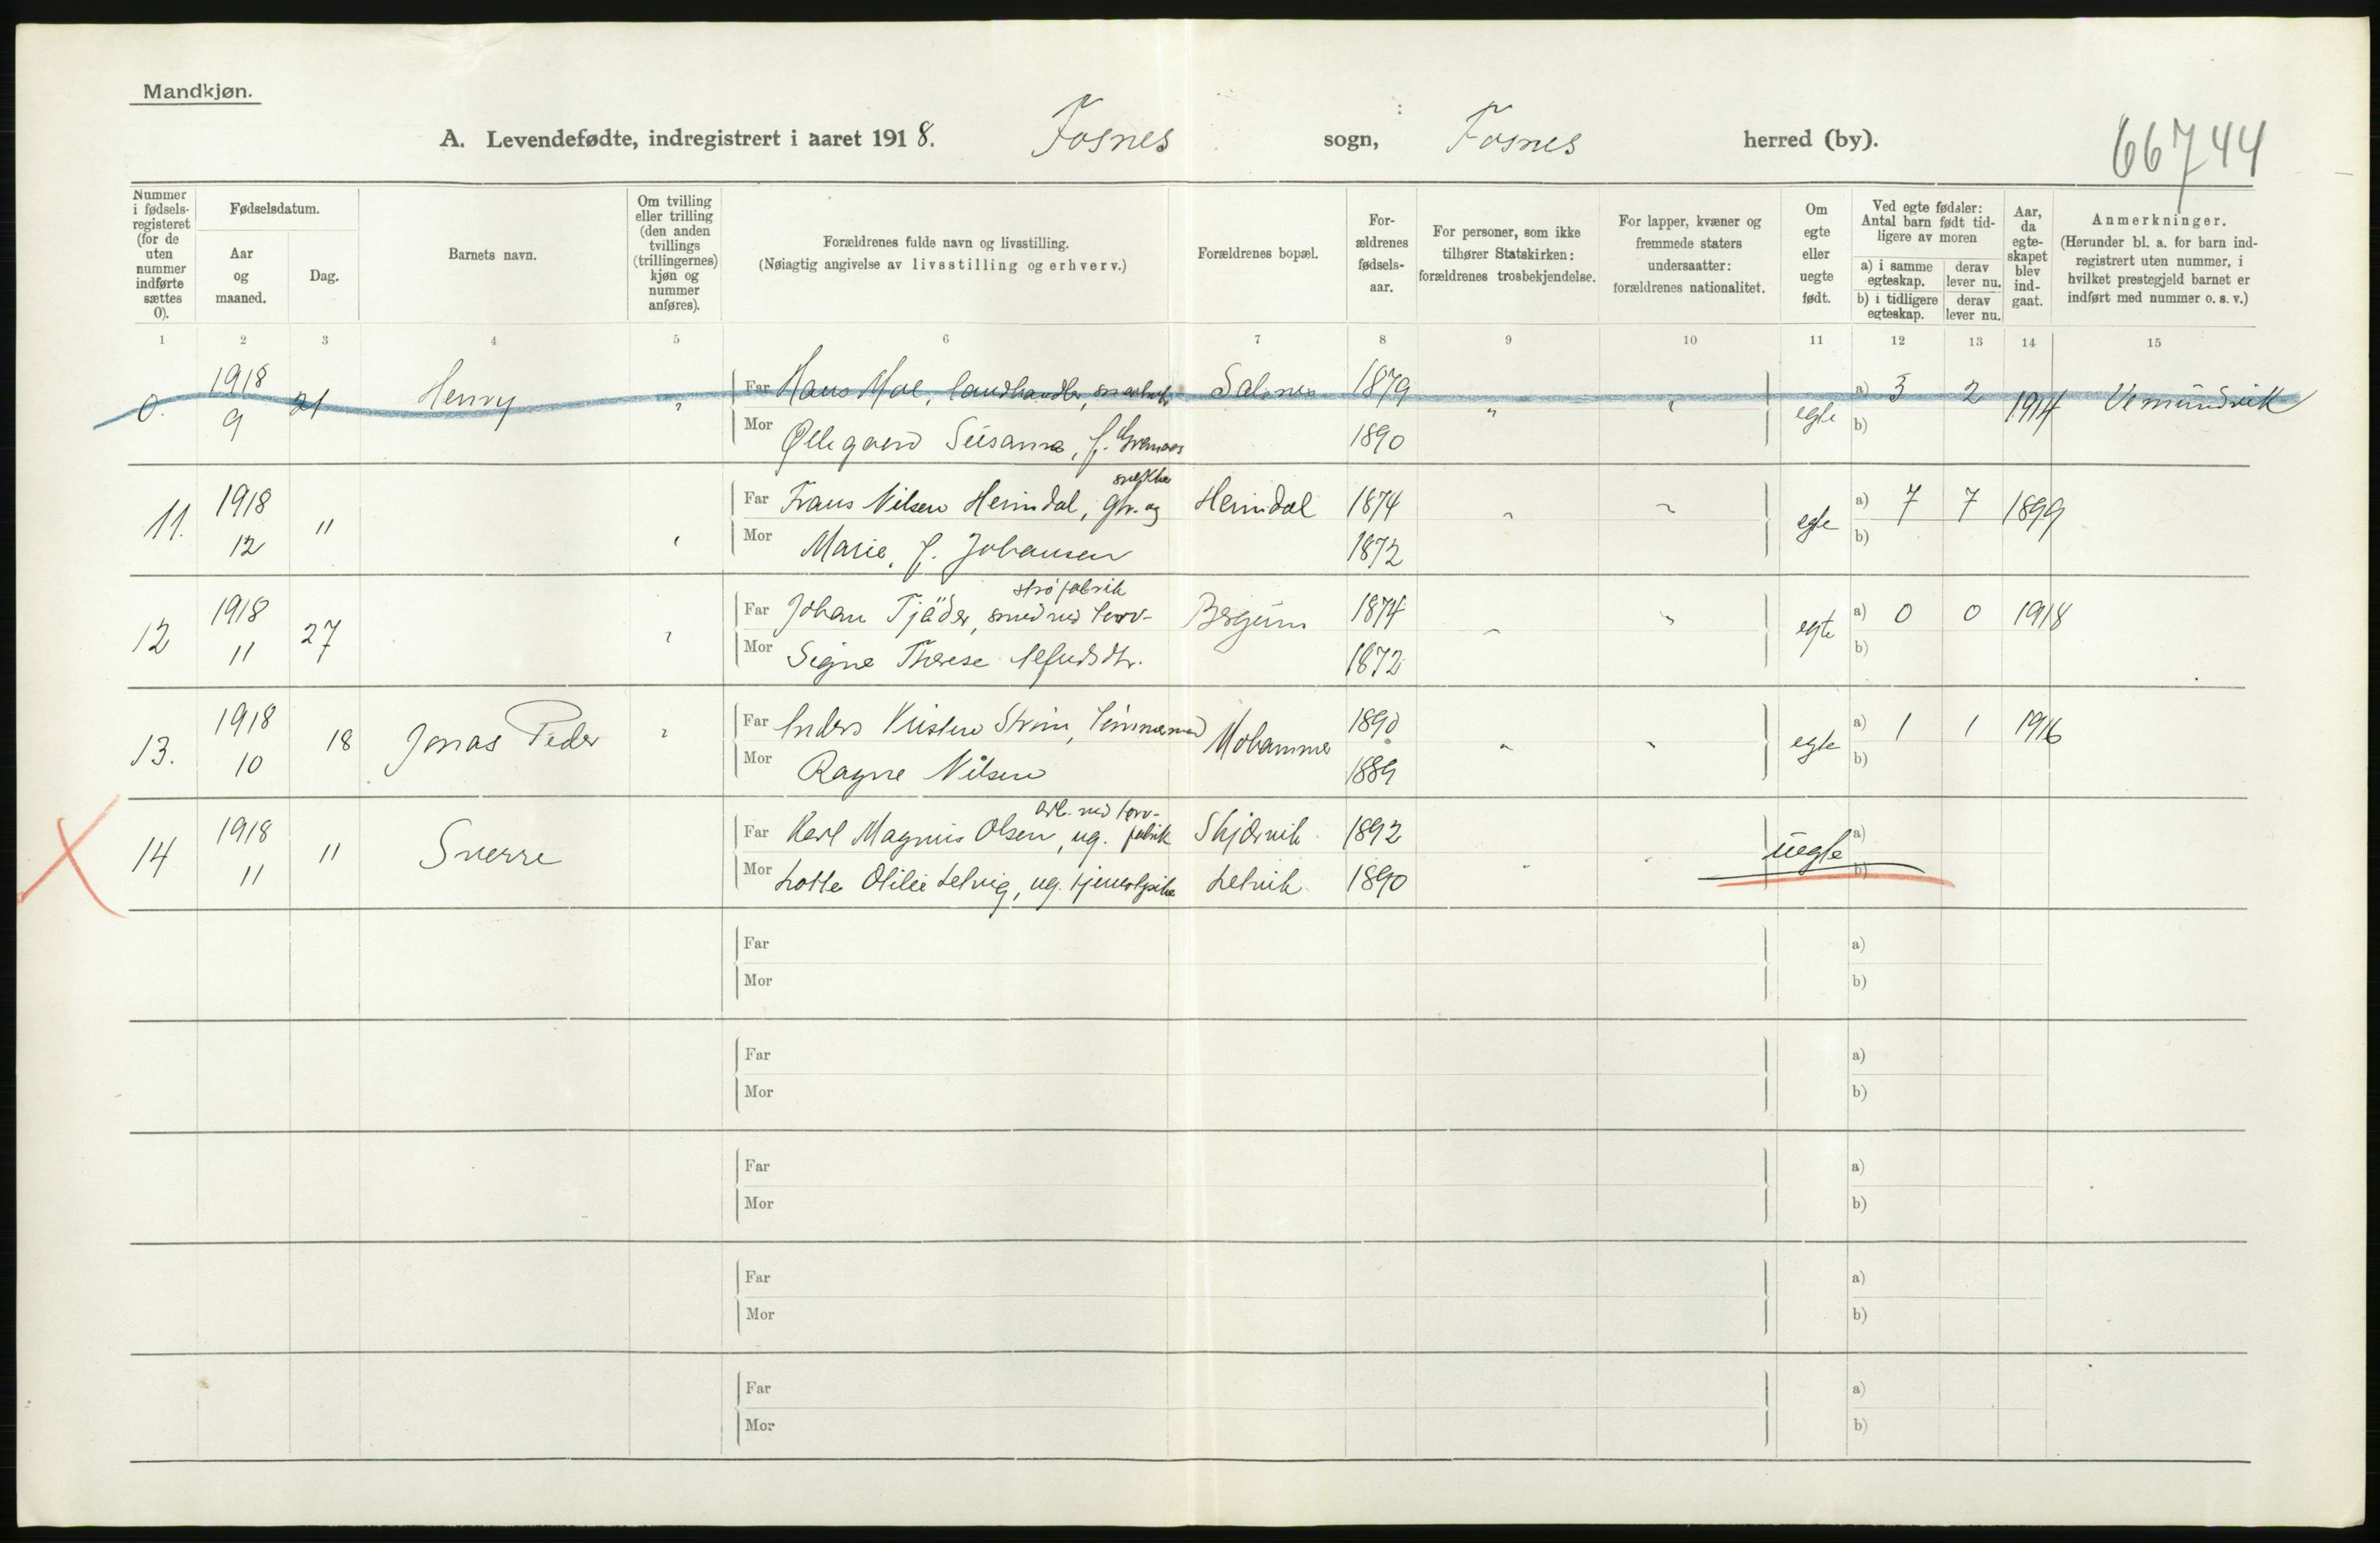 Mandkjøn.
A. Levendefødte, indregistrert i aaret 1918. Fosnes sogn, Fosnes herred (by).
66744
Nummer i fødsels-registeret (for de uten nummer indførte sættes 0).
Fødselsdatum.
Aar og maaned.
Dag.
Barnets navn.
Om tvilling eller trilling (den anden tvillings (trillingernes) kjøn og nummer anføres).
Forældrenes fulde navn og livsstilling.
(Nøiagtig angivelse av livsstilling og erhverv.)
Forældrenes bopæl.
For-ældrenes fødsels-aar.
For personer, som ikke tilhører Statskirken: forældrenes trosbekjendelse.
For lapper, kvæner og fremmede staters undersaatter: forældrenes nationalitet.
Om egte eller uegte født.
Ved egte fødsler: Antal barn født tid-ligere av moren
a) i samme egteskap.
derav lever nu.
b) i tidligere egteskap.
derav lever nu.
Aar, da egte-skapet blev ind-gaat.
Anmerkninger.
(Herunder bl. a. for barn ind-registrert uten nummer, i hvilket prestegjeld barnet er indført med nummer o. s. v.)
1 2 3 4 5 6 7 8 9 10 11 12 13 14 15
0. 1918 9 21 Henry " Far Hans Moe, landhandler, Salsnes 1879 " " egte a) 3 2 1914 Vemundvik
Mor Øllegaard Susanna, f. 1890 b)
11. 1918 12 " Far Frans Nilsen Hemdal, gbr. og snekker Hemdal 1874 " " egte a) 7 7 1899
Mor Marie, f. Johansen 1872 b)
12 1918 11 27 " Far Johan Tjäder, smed ved torv-strøfabrik Bragum 1874 " " egte a) 0 0 1918
Mor Signe Therese Alfredsdtr. 1872 b)
13. 1918 10 18 Jonas Peder " Far Anders Kristen Strøm, tømmermand Mohammer 1890 " " egte a) 1 1 1916
Mor Ragne Nilsen 1889 b)
14 1918 11 11 Sverre Far Karl Magnus Olsen, ug. arb. ved torv-fabrik Skjærvik 1892 " " uegte a)
Mor Lotte Otilie Letvig, ug. tjenestpike Letvik 1890 b)
Far a)
Mor b)
Far a)
Mor b)
Far a)
Mor b)
Far a)
Mor b)
Far a)
Mor b)